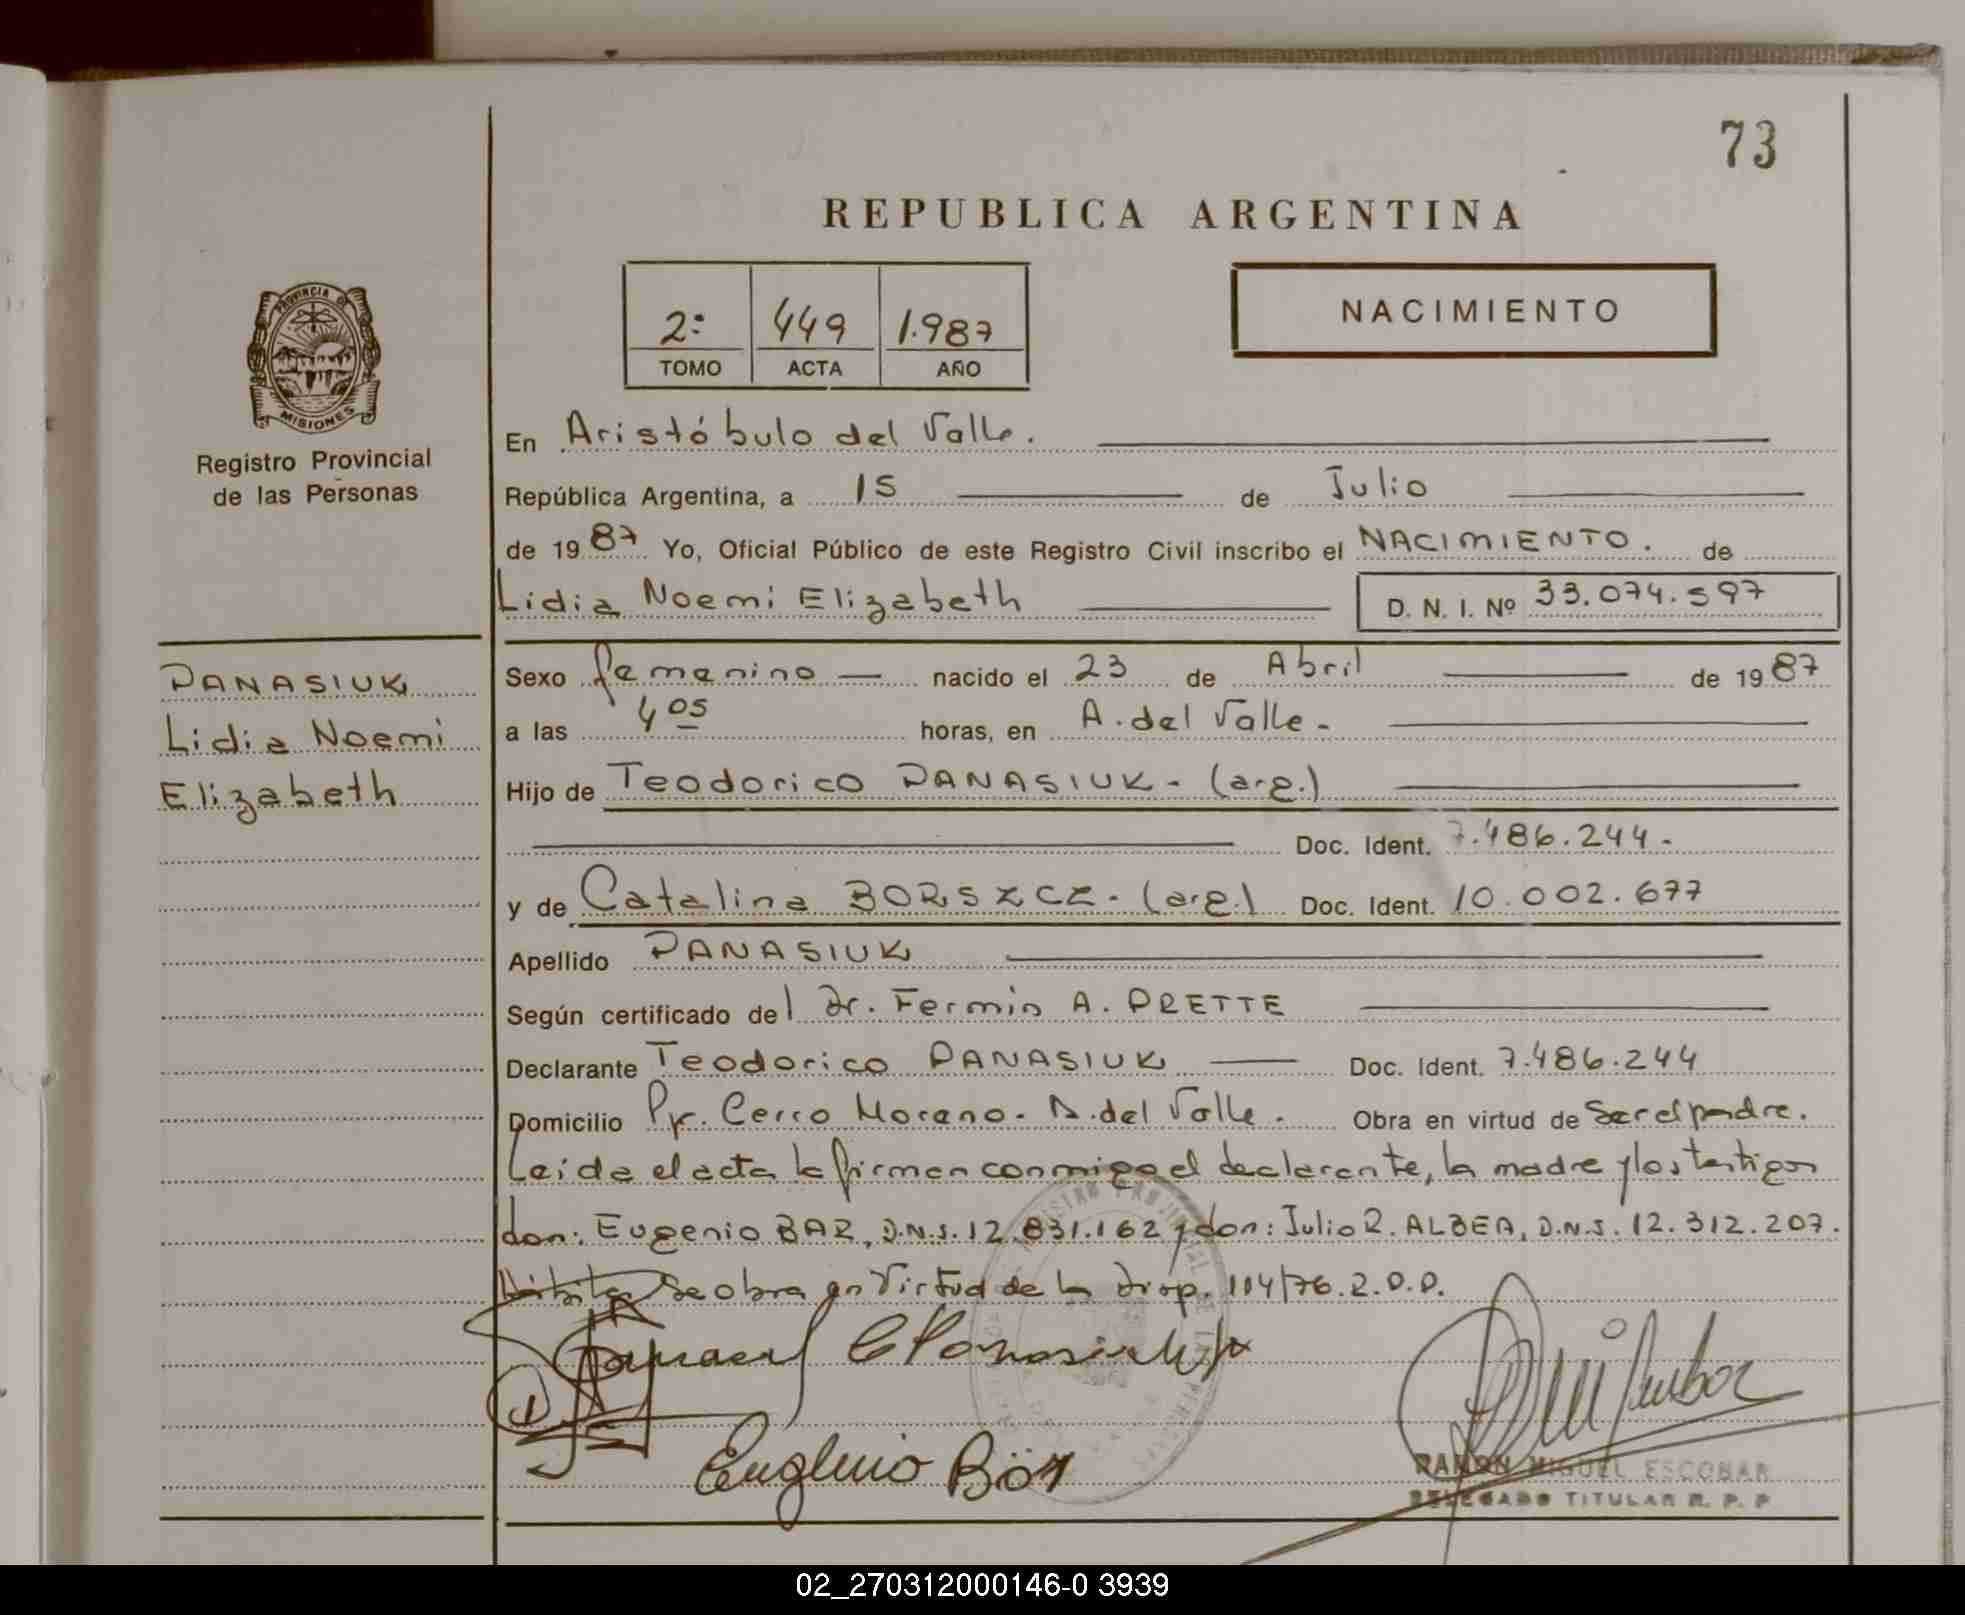 73
REPUBLICA ARGENTINA
PROVINCIA DE
MISIONES
Registro Provincial
de las Personas
2: 449 1.987
TOMO ACTA AÑO
NACIMIENTO
En Aristóbulo del Valle.
República Argentina, a 15 de Julio
de 1987 Yo, Oficial Público de este Registro Civil inscribo el NACIMIENTO. de
Lidia Noemi Elizabeth D. N. I. Nº 33.074.597
PANASIUK
Lidia Noemi
Elizabeth
Sexo femenino nacido el 23 de Abril de 1987
a las 4 05 horas, en A. del Valle.-
Hijo de Teodorico PANASIUK.- (arg.)
Doc. Ident. 7.486.244.-
y de Catalina BORSZCZ.- (arg.) Doc. Ident. 10.002.677
Apellido PANASIUK
Según certificado del Dr. Fermin A. PRETTE
Declarante Teodorico PANASIUK Doc. Ident. 7.486.244
Domicilio Pje. Cerro Moreno. A. del Valle. Obra en virtud de Ser el padre.
Leida el acta la firman conmigo el declarante, la madre y los testigos
don: Eugenio BAR, D.N.I. 12.831.162 y don: Julio R. ALBEA, D.N.I. 12.312.207.
Se obra en Virtud de la Disp. 104/76. R.P.P.
Eugenio Bär
RAMON MIGUEL ESCOBAR
DELEGADO TITULAR R. P. P
02_270312000146-0 3939